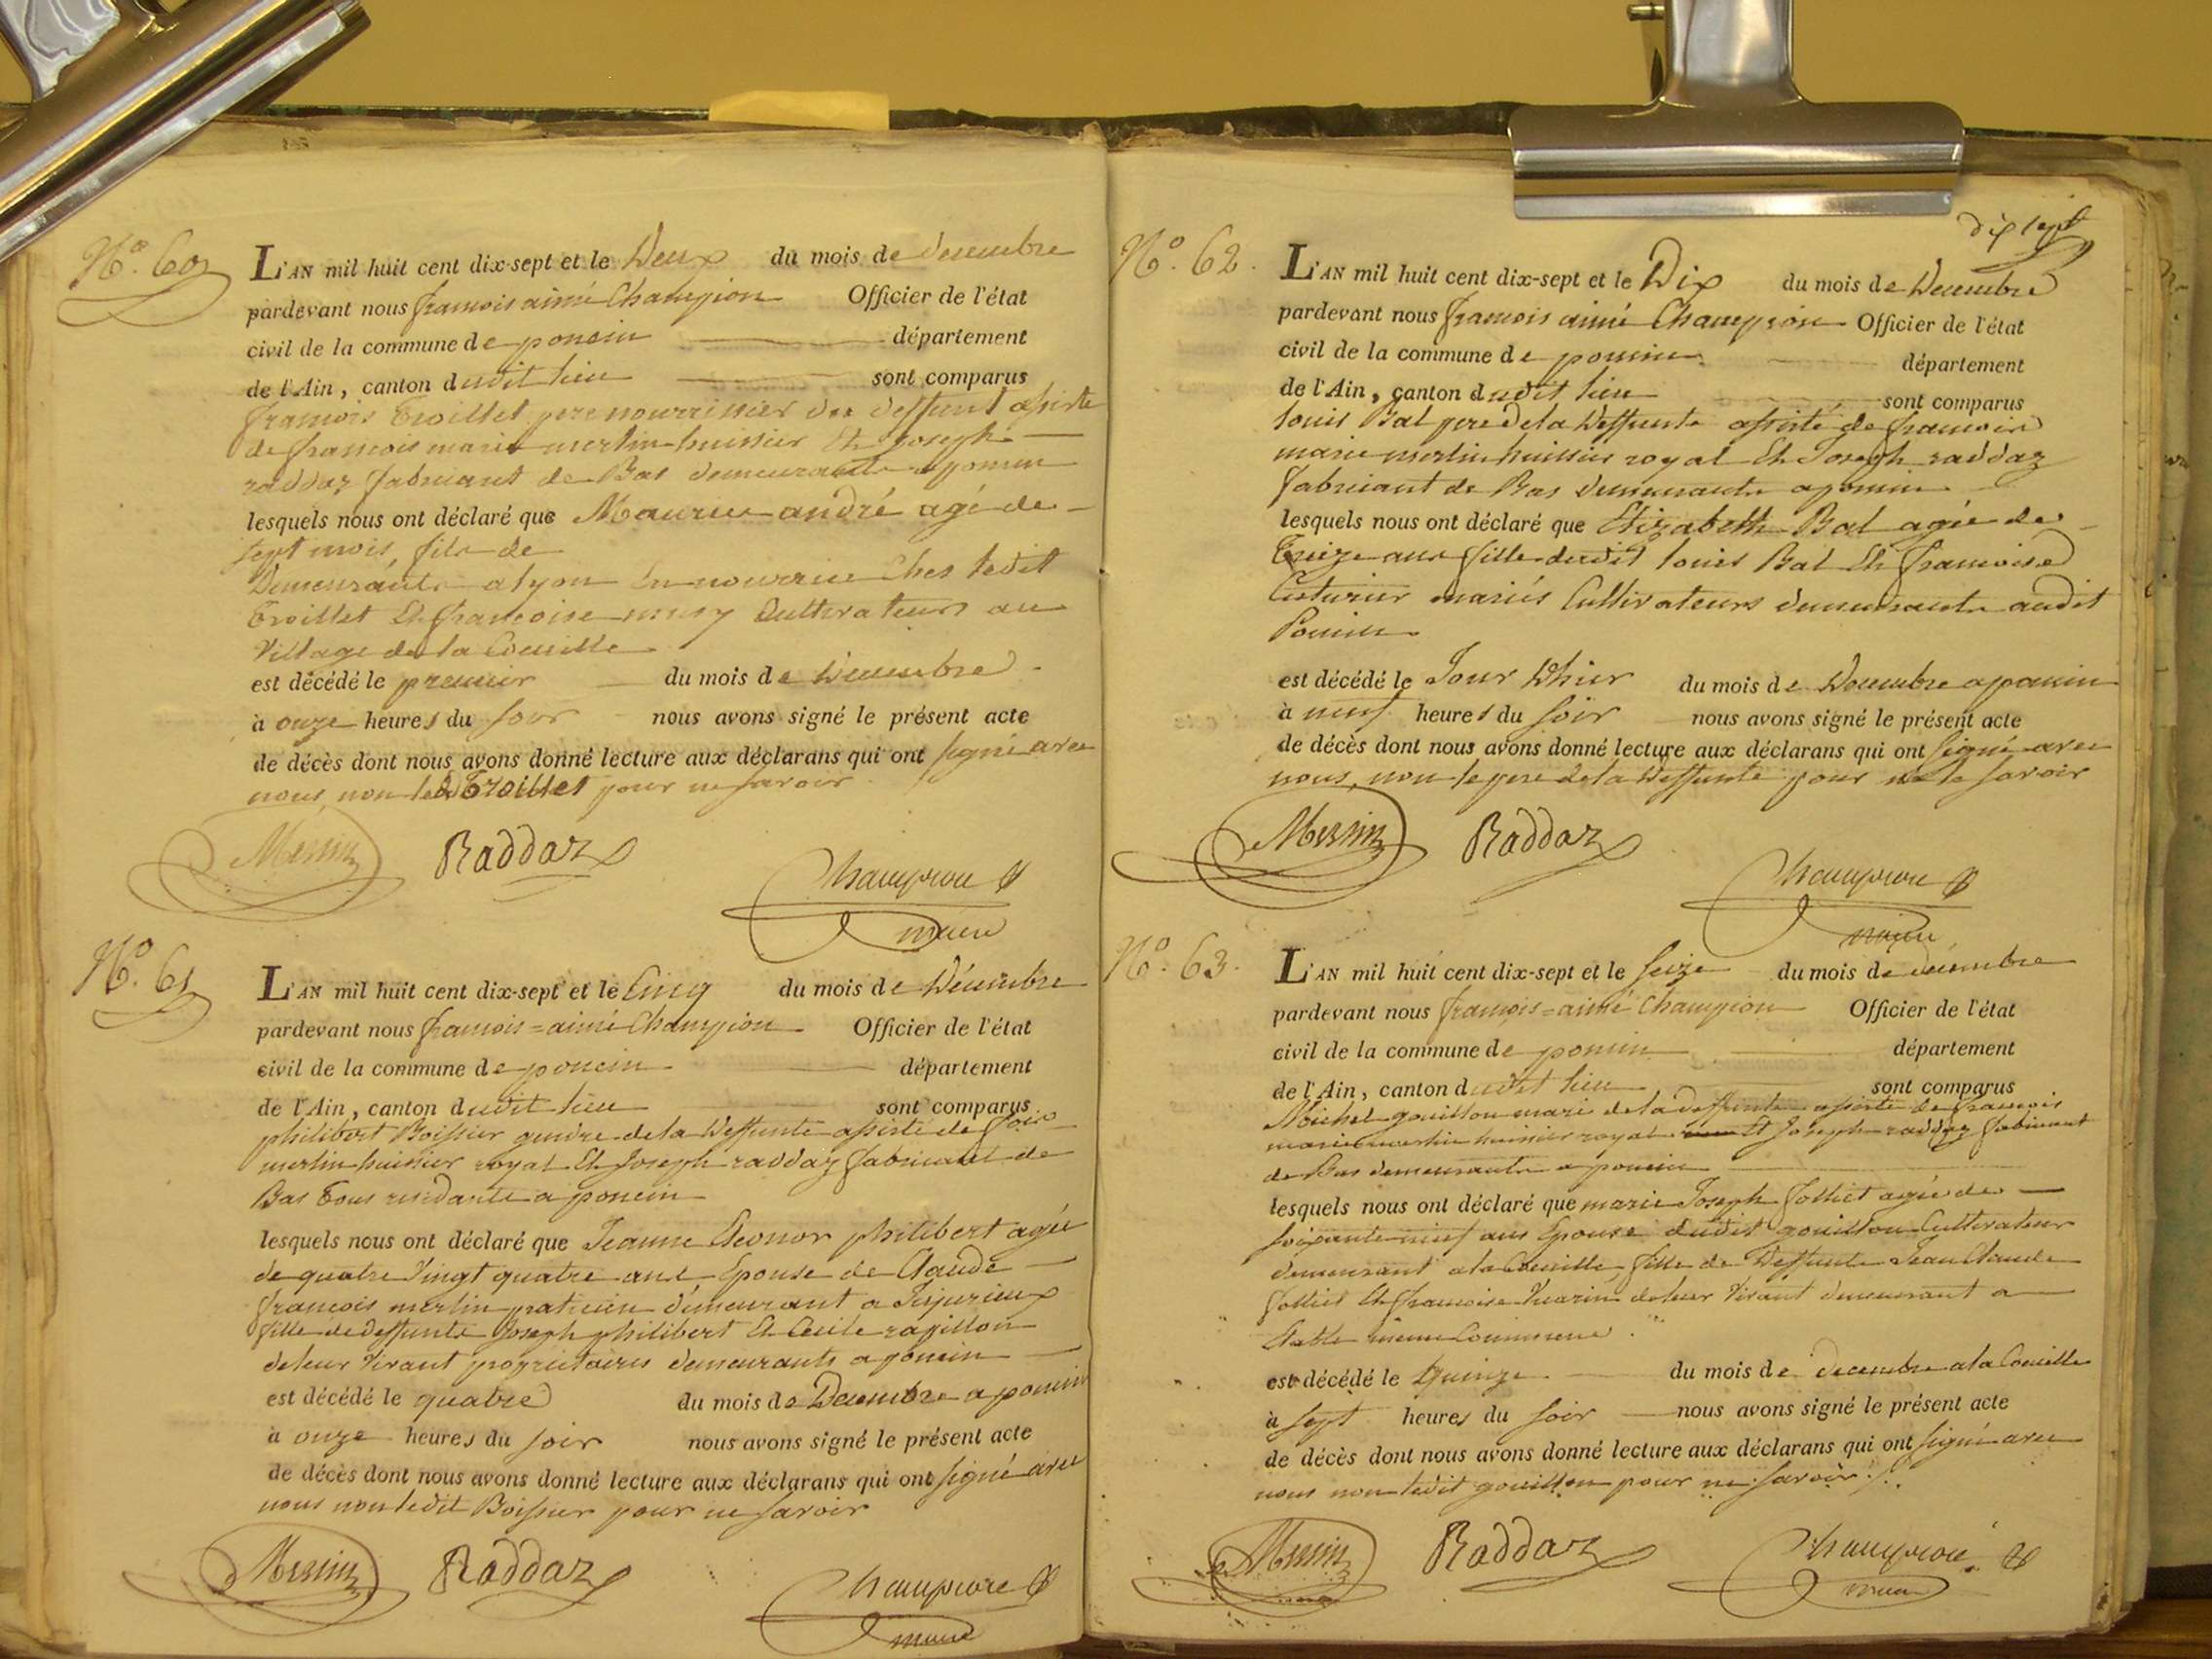 N.° 60
L'AN mil huit cent dix-sept et le Deux du mois de decembre
pardevant nous françois aimé Champion Officier de l'état
civil de la commune de poncin département
de l'Ain, canton dudit lieu sont comparus
françois Troillet pere nourrissier du deffunt assisté
de françois marie merlin huissier Et joseph
raddaz fabricant de Bas demeurants a poncin
lesquels nous ont déclaré que Maurice andré agé de
sept mois, fils de
Demeurants a lyon En nourrice Ches ledit
Troillet Et françoise musy Cultivateurs au
Village de la Coueille
est décédé le premier du mois de Decembre
à onze heures du soir nous avons signé le présent acte
de décès dont nous avons donné lecture aux déclarans qui ont signé avec
nous non led Troillet pour ne savoir
Merlin Raddaz
Champion
maire
N.° 61
L'AN mil huit cent dix-sept et le Cinq du mois de Décembre
pardevant nous françois=aimé Champion Officier de l'état
civil de la commune de poncin département
de l'Ain, canton dudit lieu sont comparus
philibert Boissier gendre de la Deffunte assisté de fois
merlin huissier royal Et Joseph raddaz fabricant de
Bas Tous residants a poncin
lesquels nous ont déclaré que Jeanne Eleonor philibert agée
de quatre Vingt quatre ans Epouse de Claude
françois merlin praticien demeurant a Jujurieux
fille de deffunts Joseph philibert Et Cecile rapillon
de leur Vivant proprietaires demeurants a poncin
est décédé le quatre du mois de Decembre a poncin
à onze heures du soir nous avons signé le présent acte
de décès dont nous avons donné lecture aux déclarans qui ont signé avec
nous non ledit Boissier pour ne savoir
Merlin Raddaz
Champion
maire
dix sept
N.° 62.
L'AN mil huit cent dix-sept et le Dix du mois de Decembre
pardevant nous françois aimé Champion Officier de l'état
civil de la commune de poncin département
de l'Ain, canton dudit lieu sont comparus
louis Bal pere de la Deffunte assisté de françois
marie merlin huissier royal Et Joseph raddaz
fabricant de Bas Demeurants a poncin
lesquels nous ont déclaré que Elizabeth Bal agée de
Treize ans fille dudit louis Bal Et françoise
Cuturier mariés Cultivateurs demeurants audit
Poncin
est décédé le Jour D'hier du mois de Decembre a poncin
à neuf heures du soir nous avons signé le présent acte
de décès dont nous avons donné lecture aux déclarans qui ont signé avec
nous, non le pere de la Deffunte pour ne le savoir
Merlin Raddaz
Champion
maire
N.° 63.
L'AN mil huit cent dix-sept et le seize du mois de décembre
pardevant nous françois=aimé Champion Officier de l'état
civil de la commune de poncin département
de l'Ain, canton dudit lieu sont comparus
Michel gouillon mari de la deffunte assisté de francois
marie merlin huissier royal Et Joseph raddaz fabricant
de Bas demeurants a poncin
lesquels nous ont déclaré que marie Joseph Jolliet agée de
soixante neuf ans Epouse dudit gouillon Cultivateur
demeurant a la Coueille fille de Deffunts Jean Claude
Jolliet Et françoise Vuarin de leur Vivant demeurant a
Etable même Commune
est décédé le Quinze du mois de decembre a la Coueille
à sept heures du soir nous avons signé le présent acte
de décès dont nous avons donné lecture aux déclarans qui ont signé avec
nous non ledit gouillon pour ne savoir
Merlin Raddaz
Champion
maire